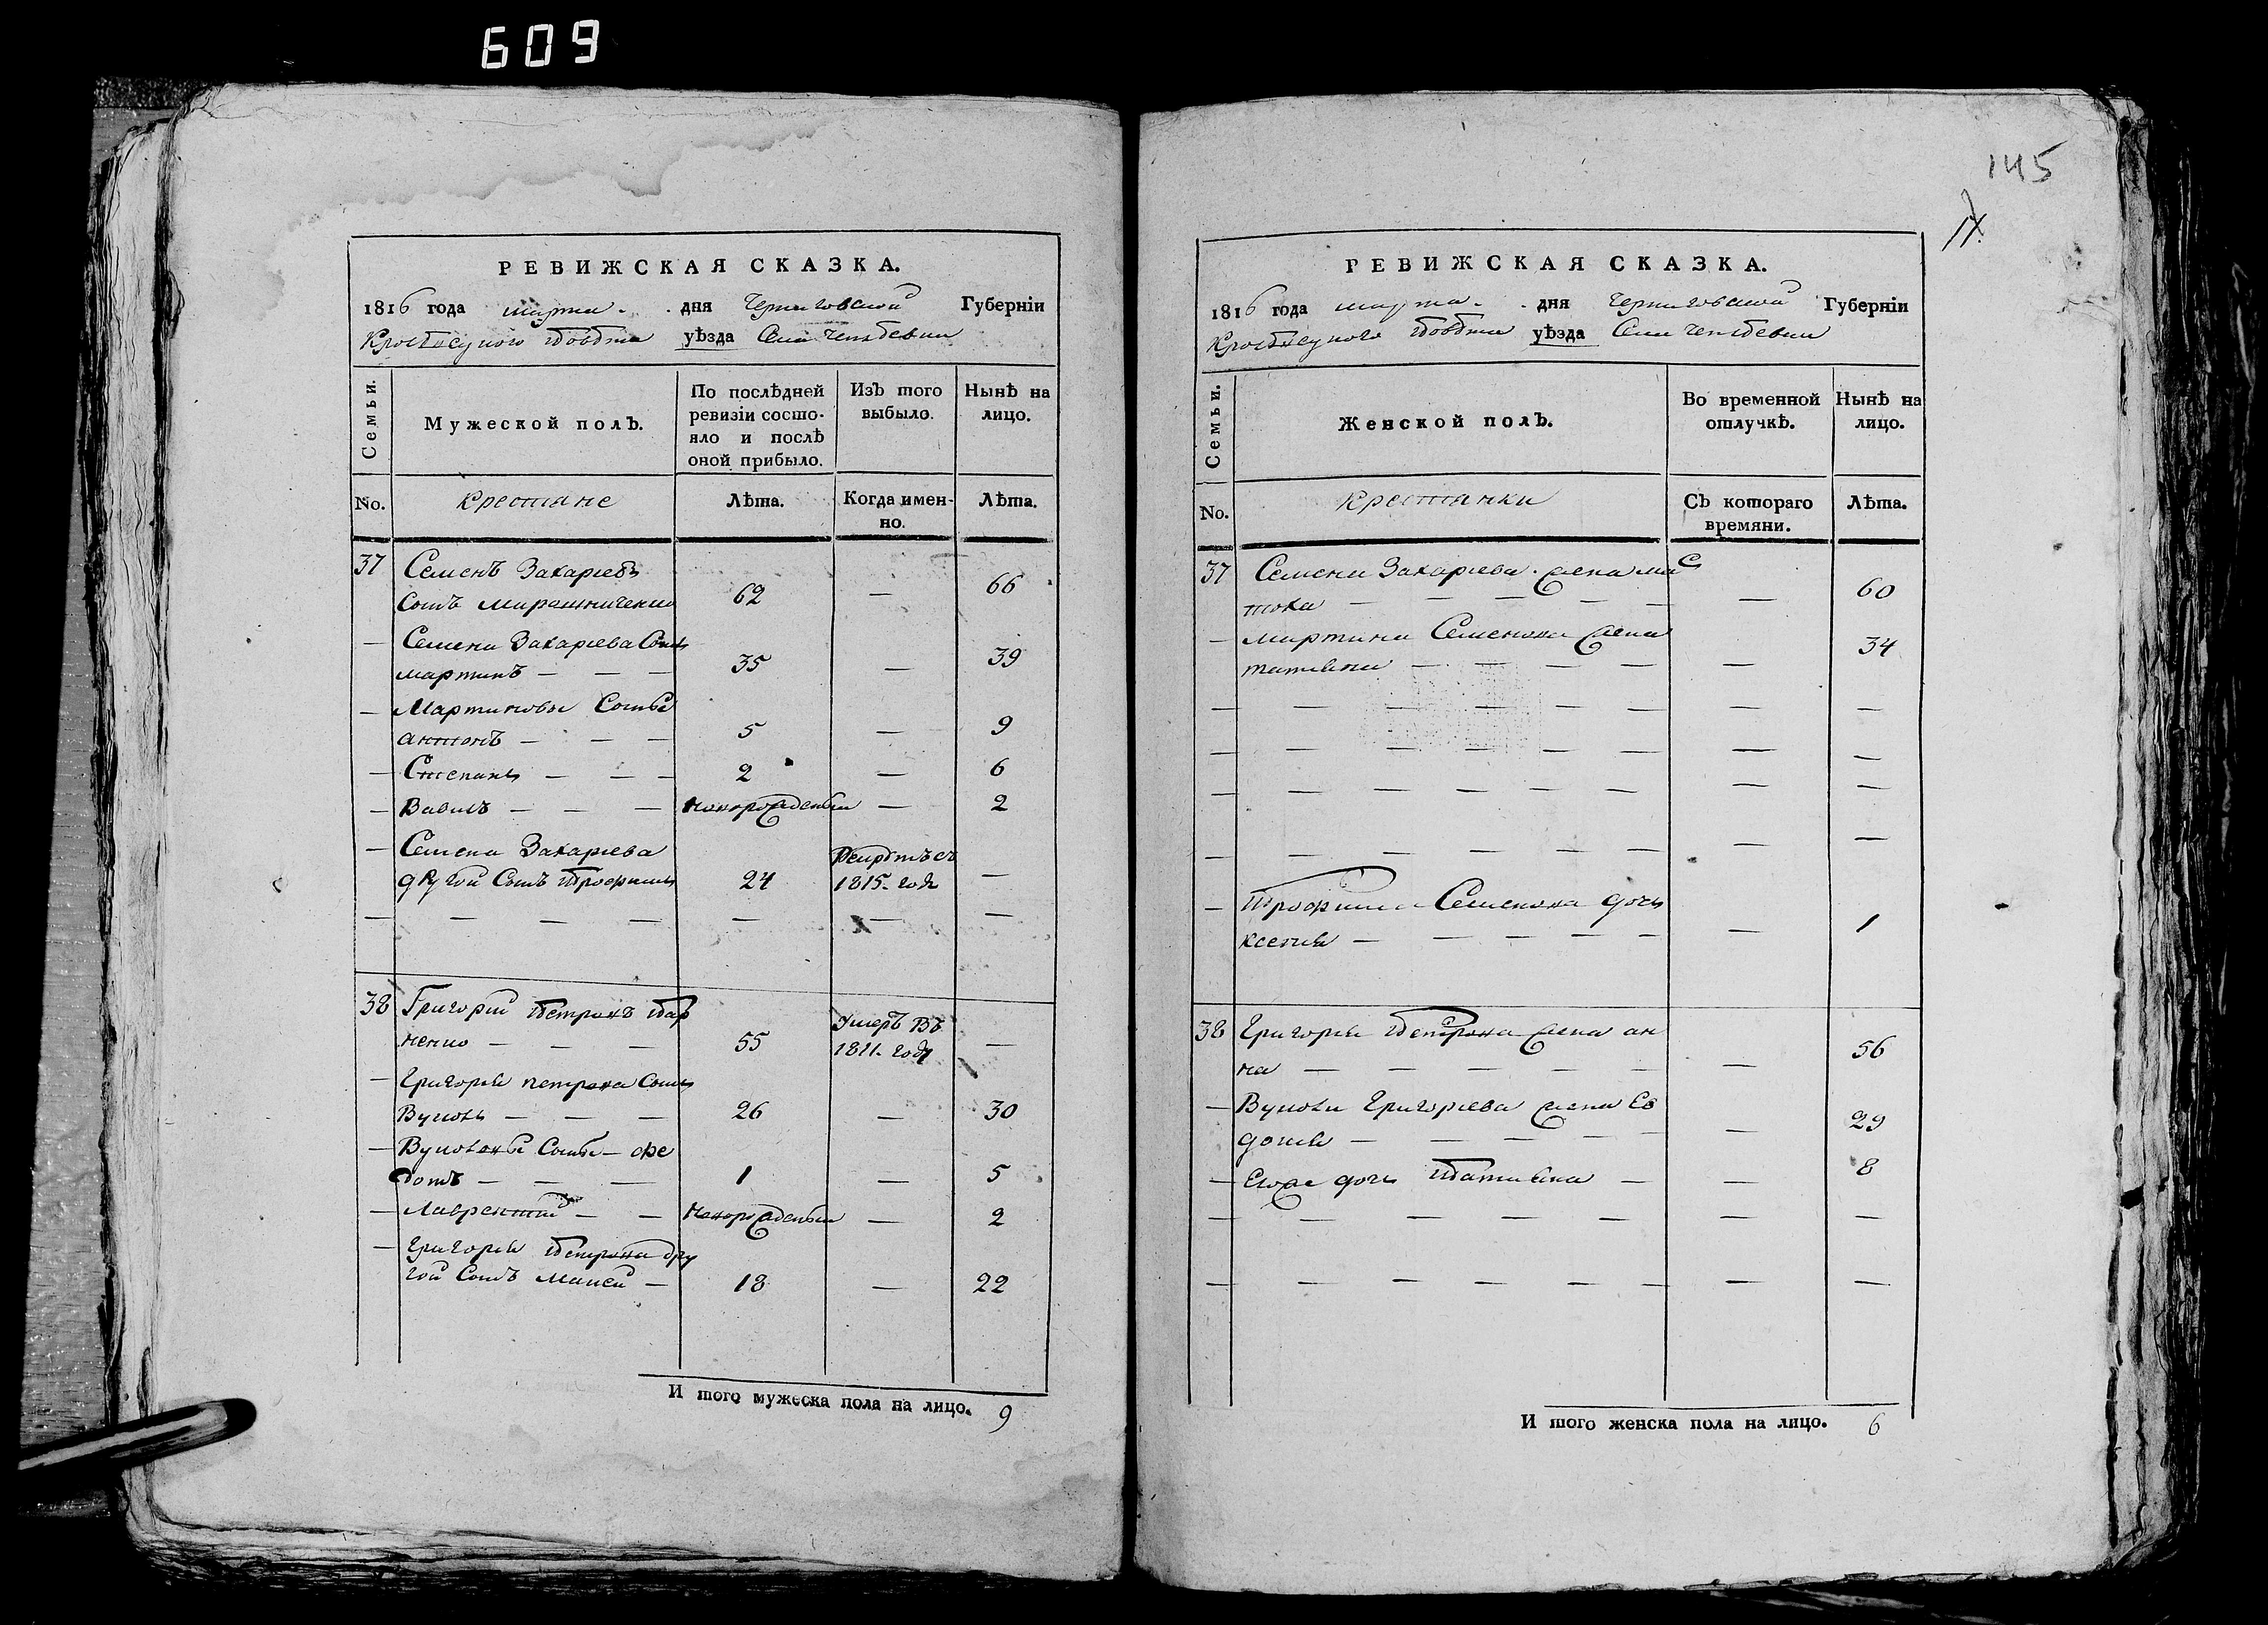 609
РЕВИЖСКАЯ СКАЗКА.
1816 года марта . дня Черниговской Губерніи
уѣзда Села
Семьи.
Мужеской полъ.
По послѣдней ревизіи состо-
яло и послѣ
оной прибыло.
Изъ того
выбыло.
Нынѣ на
лицо.
No.
крестяне
Лѣта.
Когда имен-
но.
Лѣта.
37 Семенъ Захаріевъ
сынъ Мирошниченко 62 — 66
— Семена Захаріева Сынъ
мартинъ — — — 35 — 39
— Мартиновы Сыны
антонъ — — — 5 — 9
— Степанъ — — — 2 — 6
— Вавилъ — — — новорожденый — 2
— Семена Захаріева
другой Сынъ трофимъ 24 1815. году —
— — — — — — —
38 Григорій петровъ
ненко — — — 55 Умеръ въ 1811. году —
— Григорія петрова Сынъ
Вуколъ — — — 26 — 30
— Вуколовы Сыны — фе
дотъ — — — 1 — 5
— Лаврентій — — новорожденый — 2
— Григорія петрова дру
гой Сынъ Мапсей — 18 — 22
И того мужеска пола на лицо. 9
145
РЕВИЖСКАЯ СКАЗКА.
1816 года марта . дня Черниговской Губерніи
уѣзда Села
Семьи.
Женской полъ.
Во временной
отлучкѣ.
Нынѣ на
лицо.
No.
крестянки
Съ котораго
времяни.
Лѣта.
37 Семена Захаріева жена
— — — — — — 60
— мартина Семенова жена
татияна — — — — — 34
— — — — — — — —
— — — — — — — —
— — — — — — —
— — — — — — —
— Трофима Семенова дочь
ксения — — — — — — 1
38 Григорія петрова жена ан
на — — — — — — 56
— Вукола Григоріева жена Ев
докия — — — — — — 29
— Егоже дочь татияна — — 8
— — — — — — — —
— — — — — — — —
И того женска пола на лицо. 6